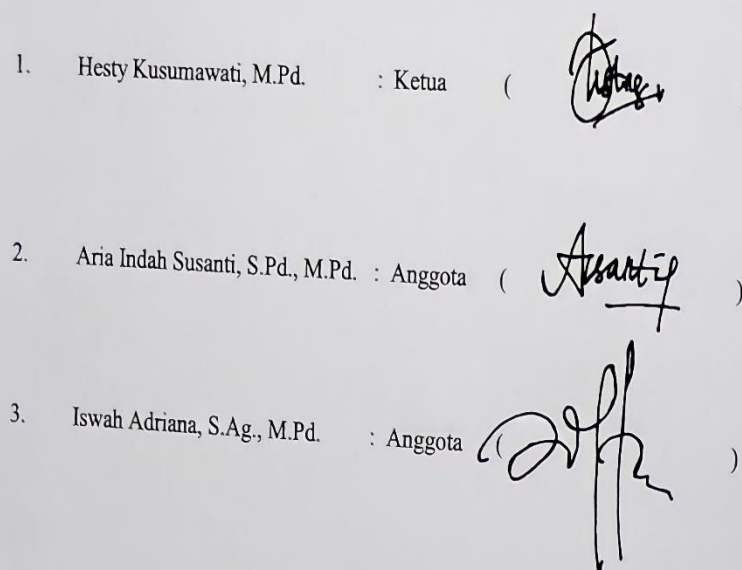 1. Hesty Kusumawati, M.Pd. : Ketua (
2. Aria Indah Susanti, S.Pd., M.Pd. : Anggota ( )
3. Iswah Adriana, S.Ag., M.Pd. : Anggota ( )